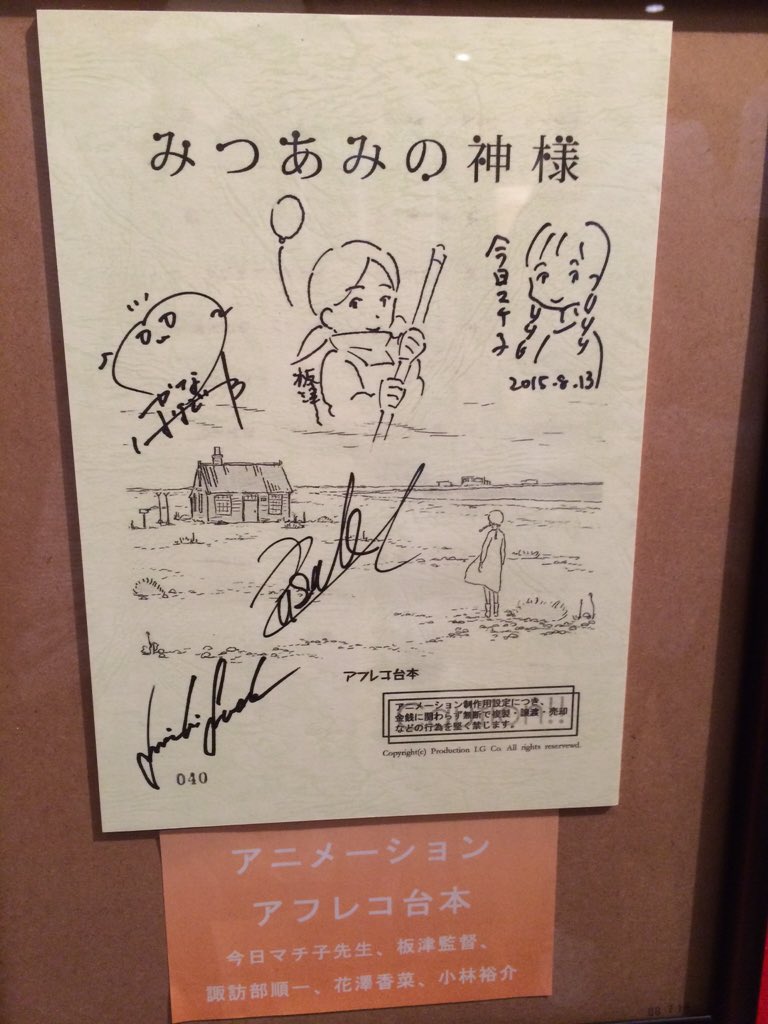 みつあみの神様
今日マチ子
2015.8.13
板津
アフレコ台本
アニメーション制作用設定につき、
金銭に関わらず無断で複製・譲渡・売却
などの行為を堅く禁じます。
Copyright(c) Production I.G Co. All rights reservewd.
040
アニメーション
アフレコ台本
今日マチ子先生、板津監督、
諏訪部順一、花澤香菜、小林裕介